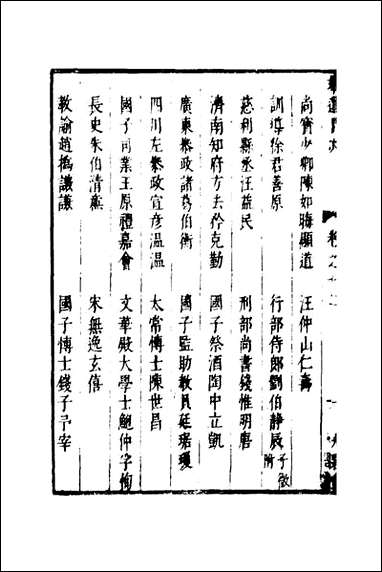 尚寶少卿陳如晦顯道　汪仲山仁壽
訓導徐君善原　行部侍郎劉伯靜辰子啟附
慈利縣丞汪益民　刑部尚書錢惟明唐
濟南知府方去矜克勤　國子祭酒陶中立凱
廣東叅政諸葛伯衡　國子監助教貝廷琚瓊
四川左叅政宣彥溫溫　太常博士陳世昌
國子司業王原禮嘉會　文華殿大學士鮑仲孚恂
長史朱伯清廉　宋無逸玄僖
教諭趙撝謙謙　國子博士錢子予宰